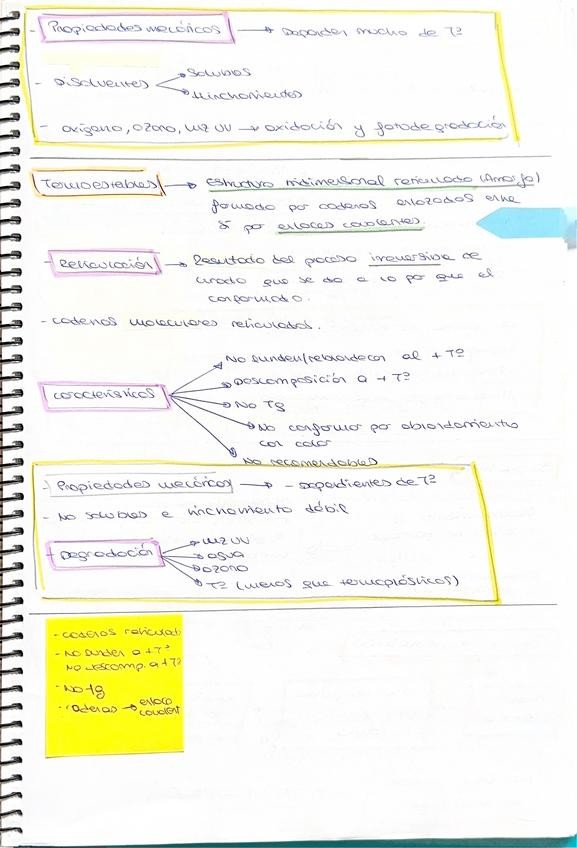 - Propiedades mecánicas → Dependen mucho de Tª
- Disolventes → Solubles
→ Hinchamientos
- oxígeno, ozono, luz UV → oxidación y fotodegradación
Termoestables → Estructura tridimensional reticulada (Amorfo)
formada por cadenas enlazadas entre
sí por enlaces covalentes.
- Reticulación → Resultado del proceso irreversible de
curado que se da a la par que el
conformado.
- cadenas moleculares reticuladas.
características → No funden/reblandecen al + Tª
→ Descomposición a + Tª
→ No Tg
→ No conformar por ablandamiento
con calor
→ No remoldeables
- Propiedades mecánicas → - Dependientes de Tª
- No solubles e hinchamiento débil
- Degradación → luz UV
→ agua
→ ozono
→ Tª (menos que termoplásticos)
- cadenas reticulad
- No funden a + Tª
No descomp. a + Tª
- No tg
- cadenas → enlace
covalent